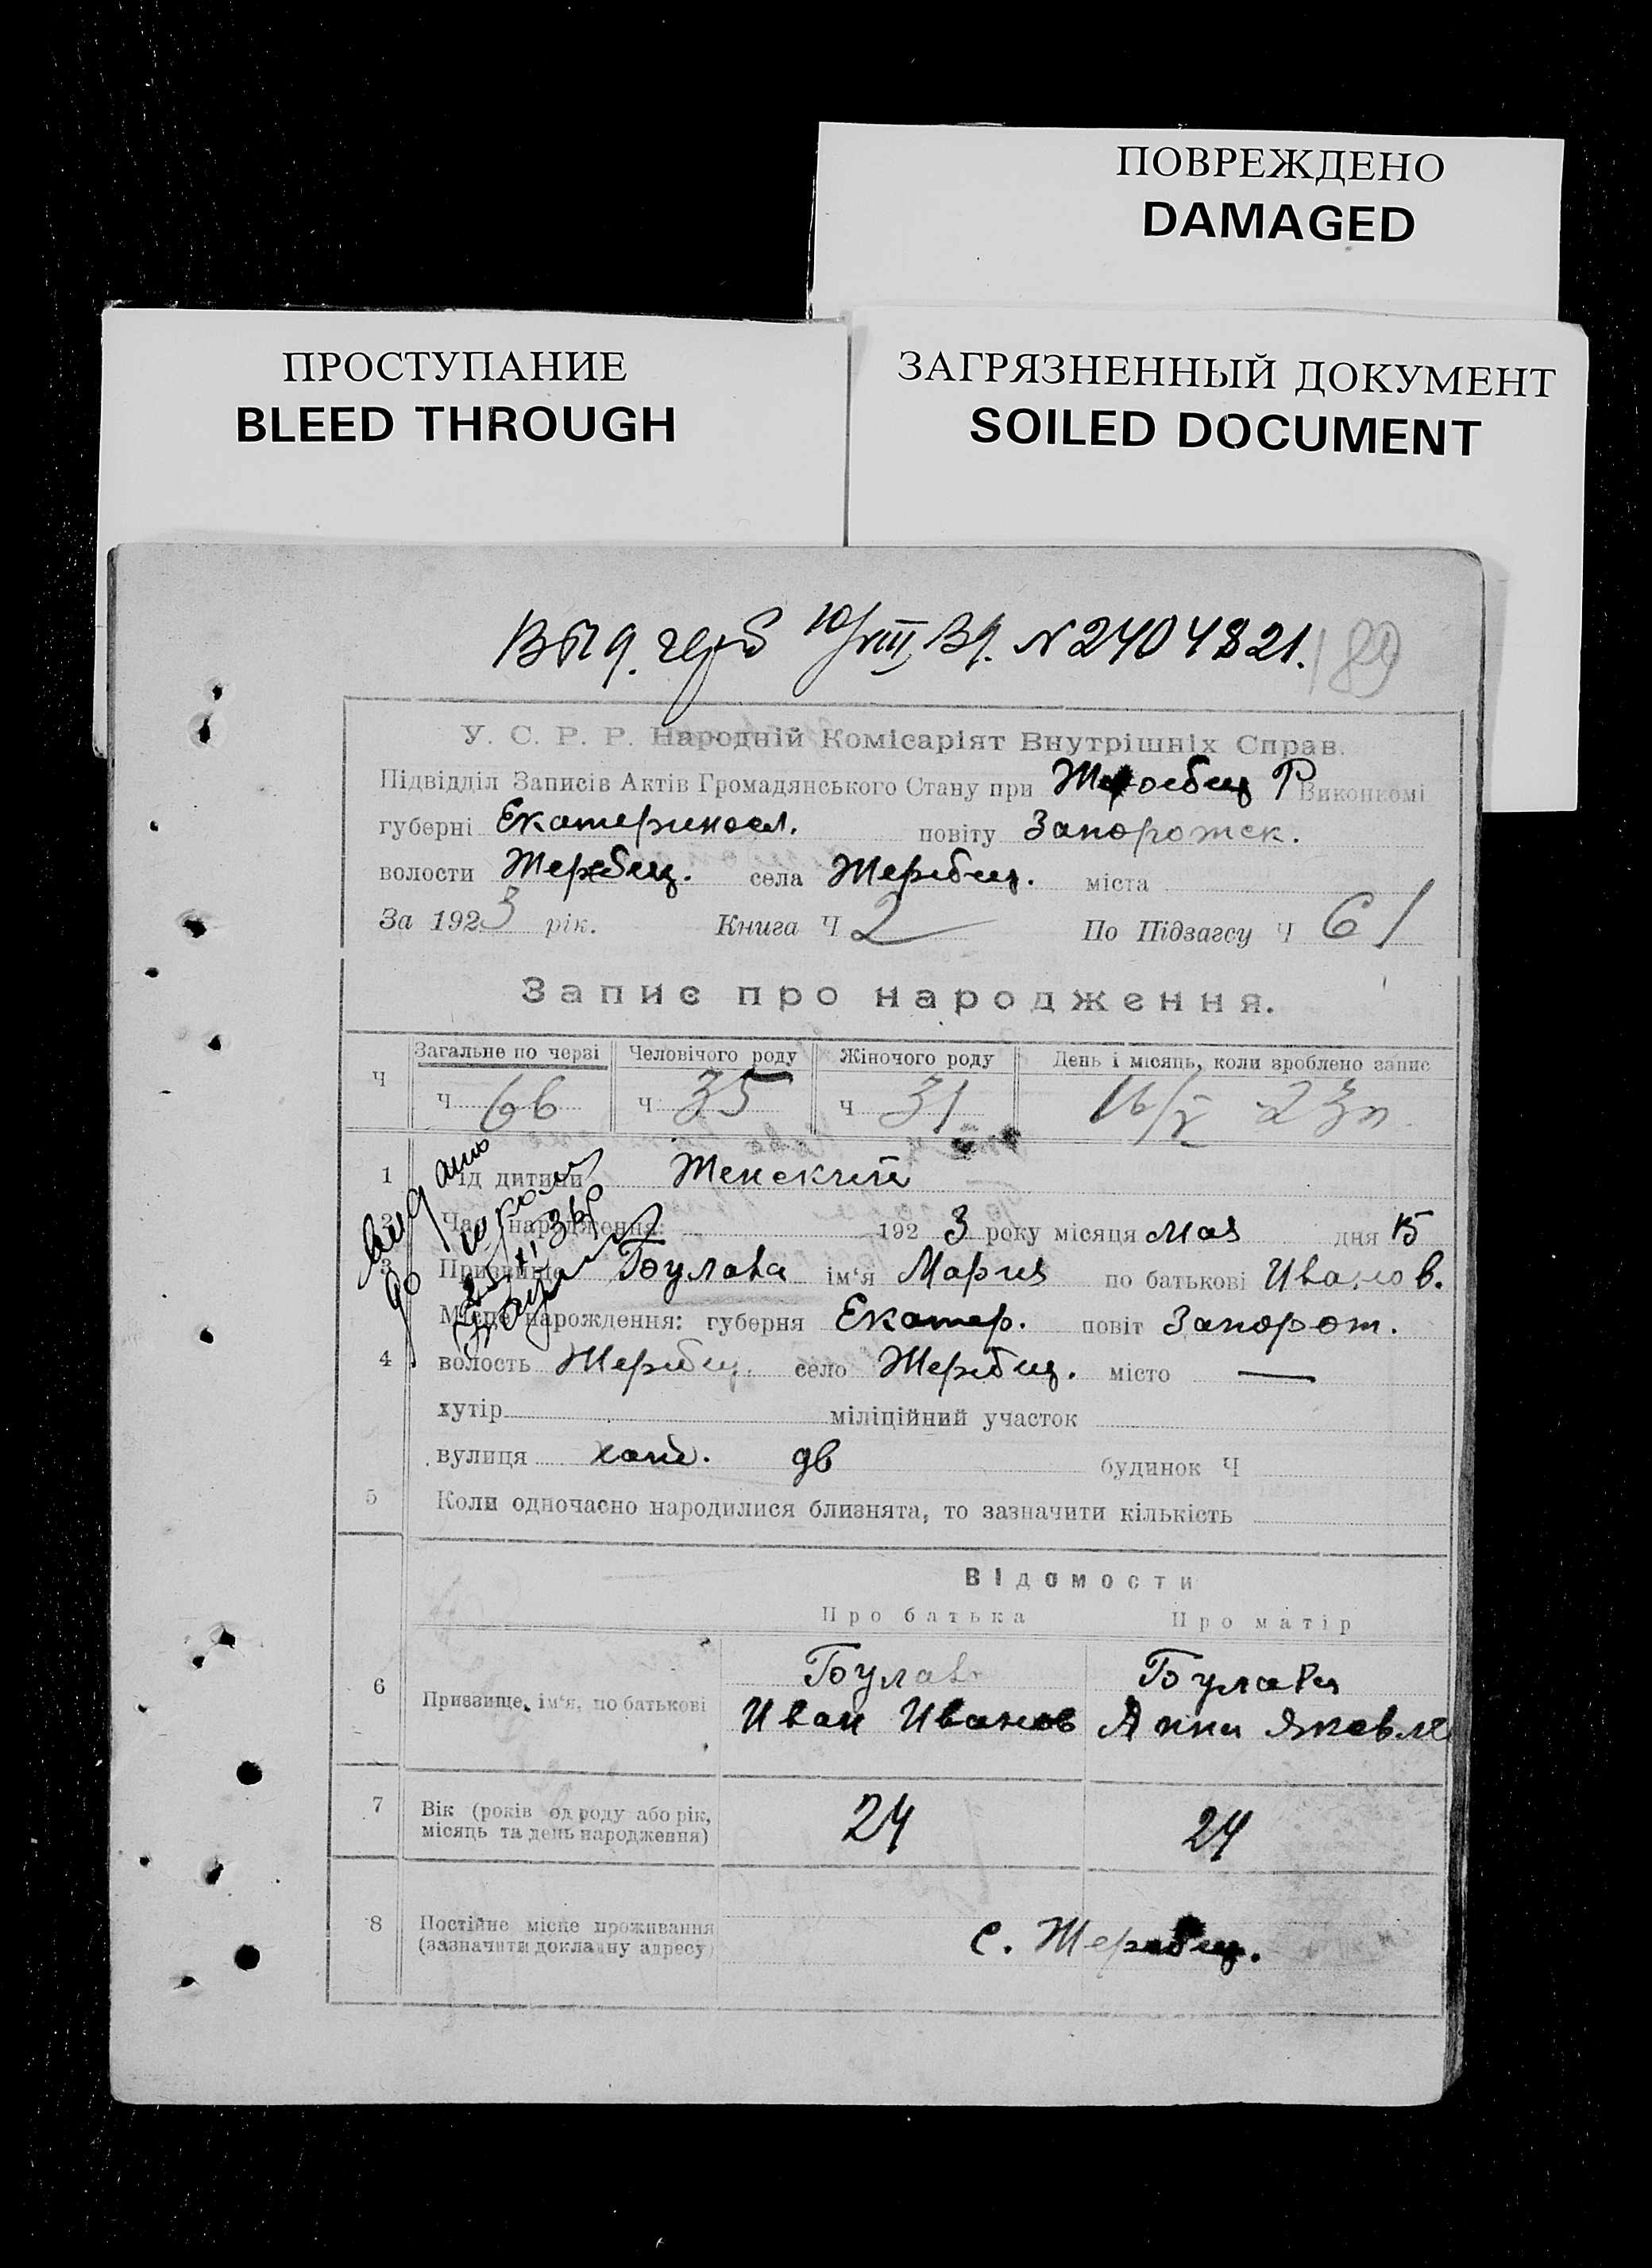 ПОВРЕЖДЕНО
DAMAGED
ПРОСТУПАНИЕ
BLEED THROUGH
ЗАГРЯЗНЕННЫЙ ДОКУМЕНТ
SOILED DOCUMENT
Выд. 10/VIII, N 2404821.
189
У. С. Р. Р. Народній Комісаріят Внутрішніх Справ.
Підвідділ Записів Актів Громадянського Стану при Жеребец Р Виконкомі
губерні Екатериносл. повіту Запорожск.
волости Жеребец. села Жеребец. міста
За 1923 рік. Книга Ч 2 По Підзагсу Ч 61
Запис про народження.
Загальне по черзі Человічого роду Жіночого роду День і місяць, коли зроблено запис
Ч Ч 66 Ч 35 Ч 31 16/V 23
1 Під дитини Женский
2 Час народження: 1923 року місяця Мая дня 15
3 Призвище Гоулава ім'я Мария по батькові Иванов.
Місце нарождення: губерня Екатер. повіт Запорож.
4 волость Жеребец. село Жеребец. місто —
хутір міліційний участок
вулиця дв будинок Ч
5 Коли одночасно народилися близнята, то зазначити кількість
Відомости
Про батька Про матір
Гоулав Гоулава
6 Призвище, ім'я, по батькові Иван Иванов Анна Яковл
7 Вік (років од роду або рік, місяць та день народження) 24 24
8 Постійне місце проживання (зазначити докладну адресу) с. Жеребец.